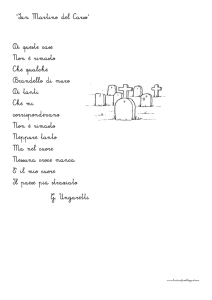 "San Martino del Carso"
Di queste case
Non è rimasto
Che qualche
Brandello di muro
Di tanti
Che mi
corrispondevano
Non è rimasto
Neppure tanto
Ma nel cuore
Nessuna croce manca
È il mio cuore
Il paese più straziato
G. Ungaretti